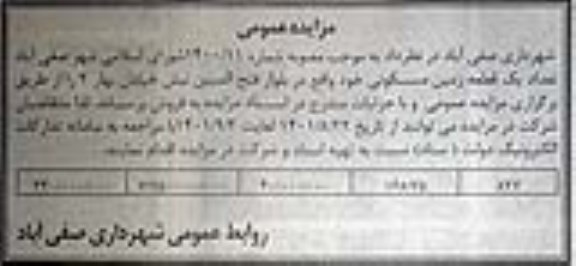 مزایده عمومی
شهرداری صفی آباد در نظر دارد به موجب مصوبه شماره ۱۴۰۰/۱۱ شورای اسلامی شهر صفی آباد
تعداد یک قطعه زمین مسکونی خود واقع در بلوار فتح المبین نبش خیابان بهار ۲ را از طریق
برگزاری مزایده عمومی و با جزئیات مندرج در اسناد مزایده به فروش برساند. لذا متقاضیان
شرکت در مزایده می توانند از تاریخ ۱۴۰۱/۸/۲۲ لغایت ۱۴۰۱/۹/۲ با مراجعه به سامانه تدارکات
الکترونیک دولت (ستاد) نسبت به تهیه اسناد و شرکت در مزایده اقدام نمایند.
روابط عمومی شهرداری صفی آباد